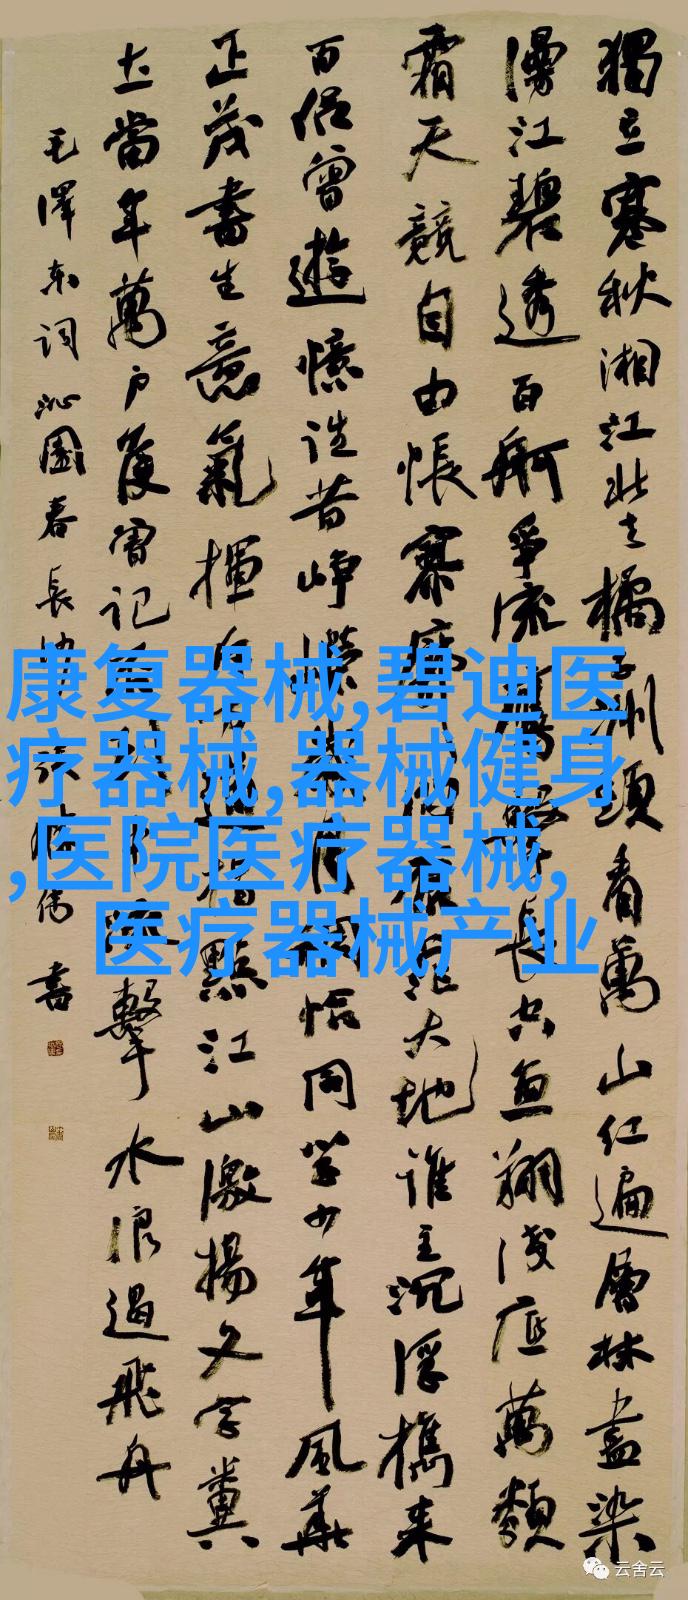 獨立寒秋湘江北去橘子洲頭看萬山紅遍層林盡染
漫江碧透百舸爭流鷹擊長空魚翔淺底萬類
霜天競自由悵寥廓問蒼茫大地誰主沉浮攜來
百侶曾遊憶往昔崢嶸歲月稠恰同學少年風華
正茂書生意氣揮斥方遒指點江山激揚文字糞
土當年萬戶侯曾記否到中流擊水浪遏飛舟
毛澤東詞沁園春長沙 書
康复器械,碧迪医
疗器械,器械健身
,医院医疗器械,
医疗器械产业
云舍云